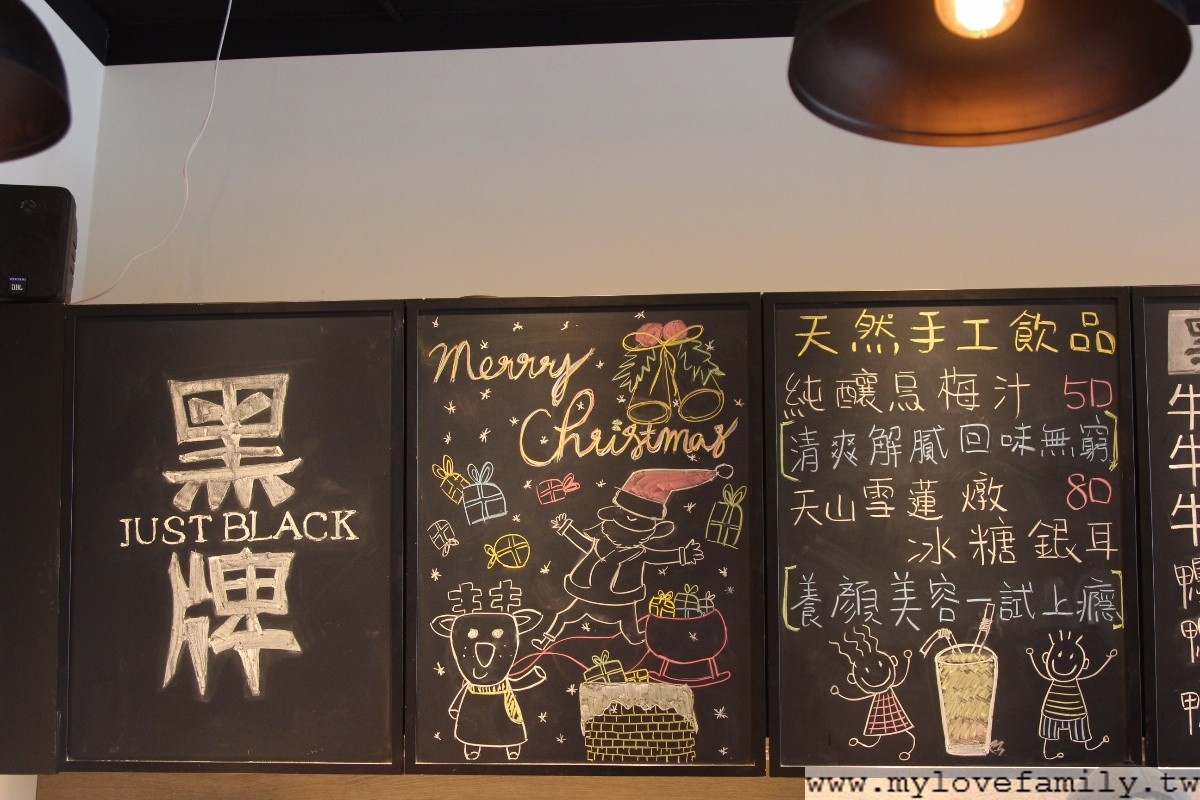 黑
JUST BLACK
牌
Merry
Christmas
天然手工飲品
純釀烏梅汁 50
[清爽解膩回味無窮]
天山雪蓮燉 80
冰糖銀耳
[養顏美容一試上癮]
牛
牛
牛
鴨
鴨
鴨
JBL
www.mylovefamily.tw